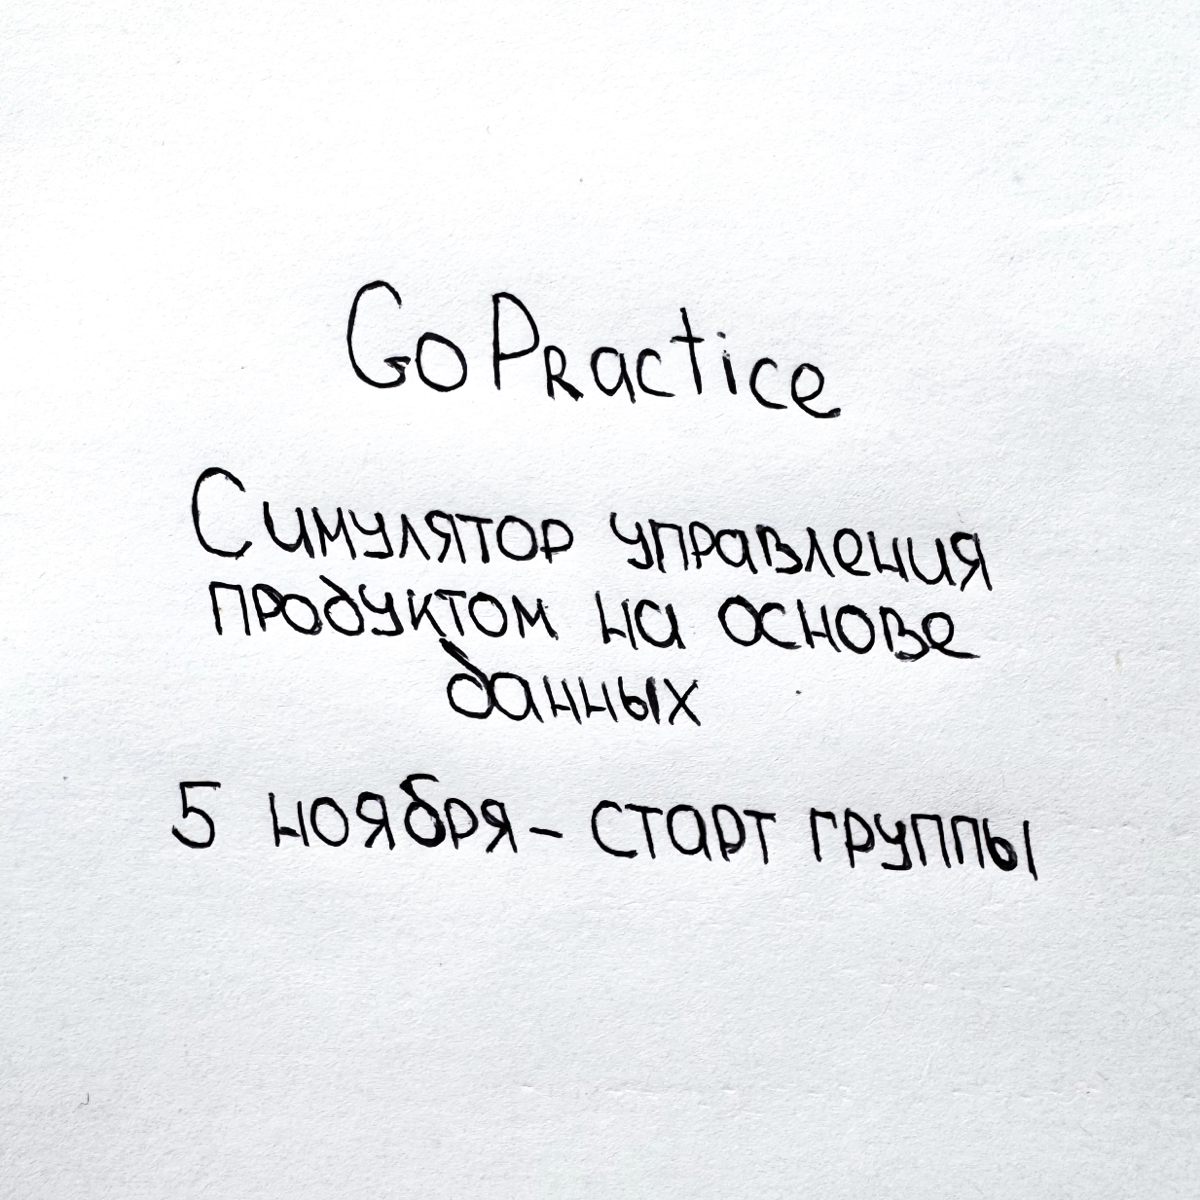 GoPractice
Симулятор управления
продуктом на основе
данных
5 ноября – старт группы